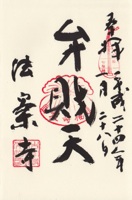 奉拝
平成二十四年
一月二十八日
弁財天
法案寺